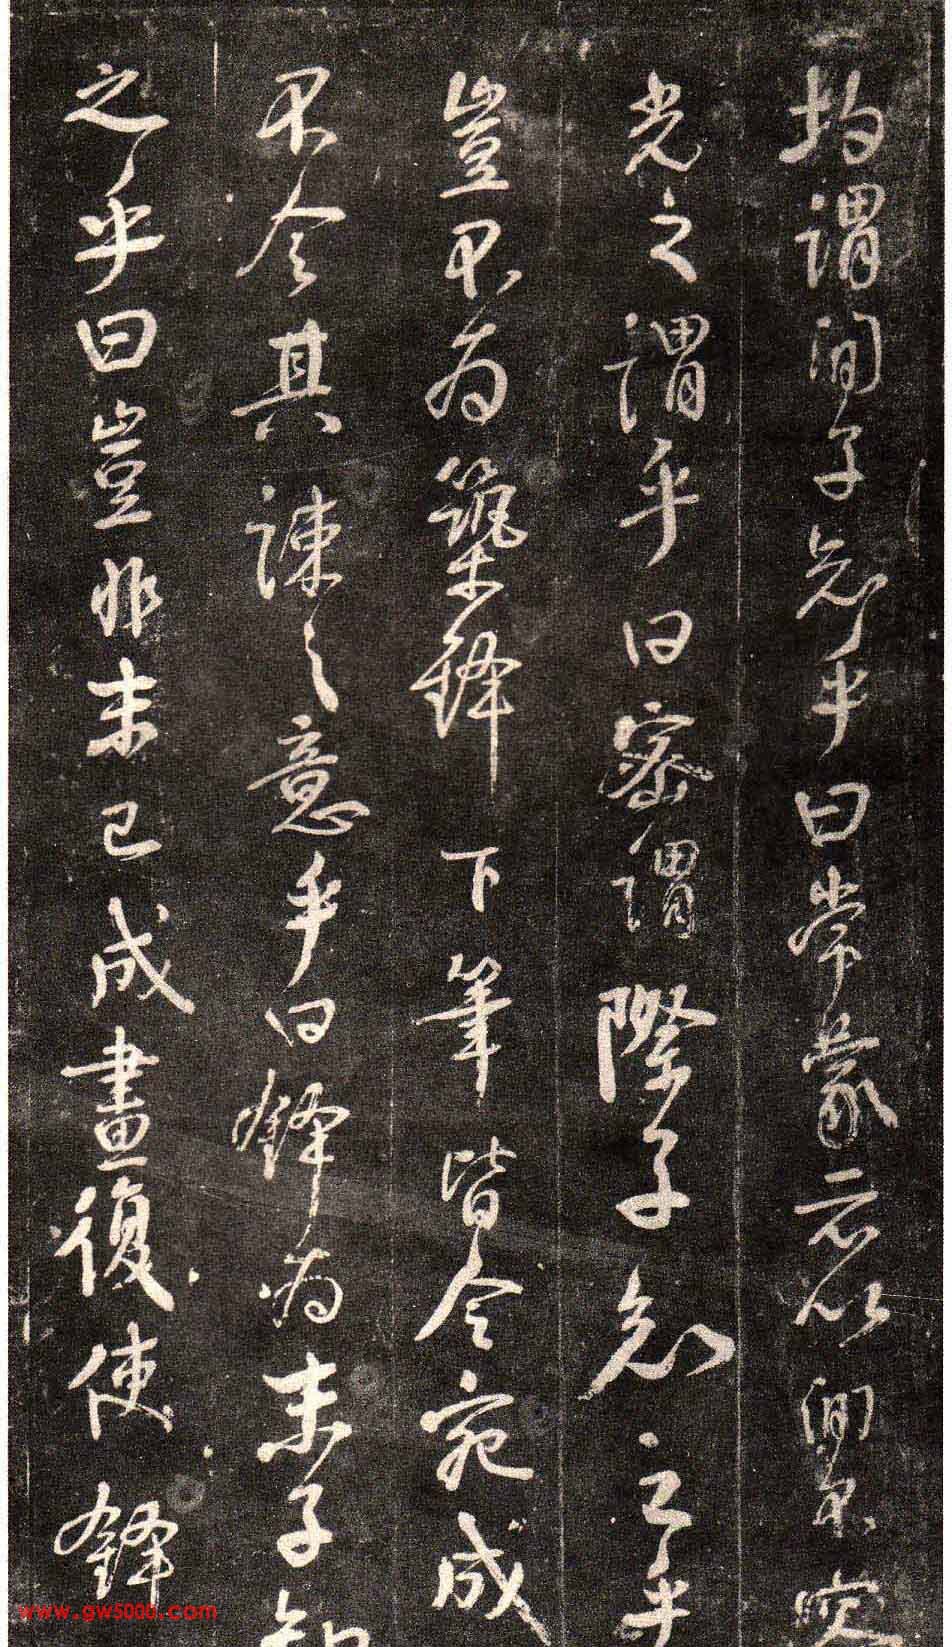 均謂間子知乎曰常蒙示以間不容
光之謂乎曰密謂際子知之乎
豈不為築鋒下筆皆令宛成
不令其疎之意乎曰鋒為末子知
之乎曰豈非末已成畫復使鋒
www.gw5000.com